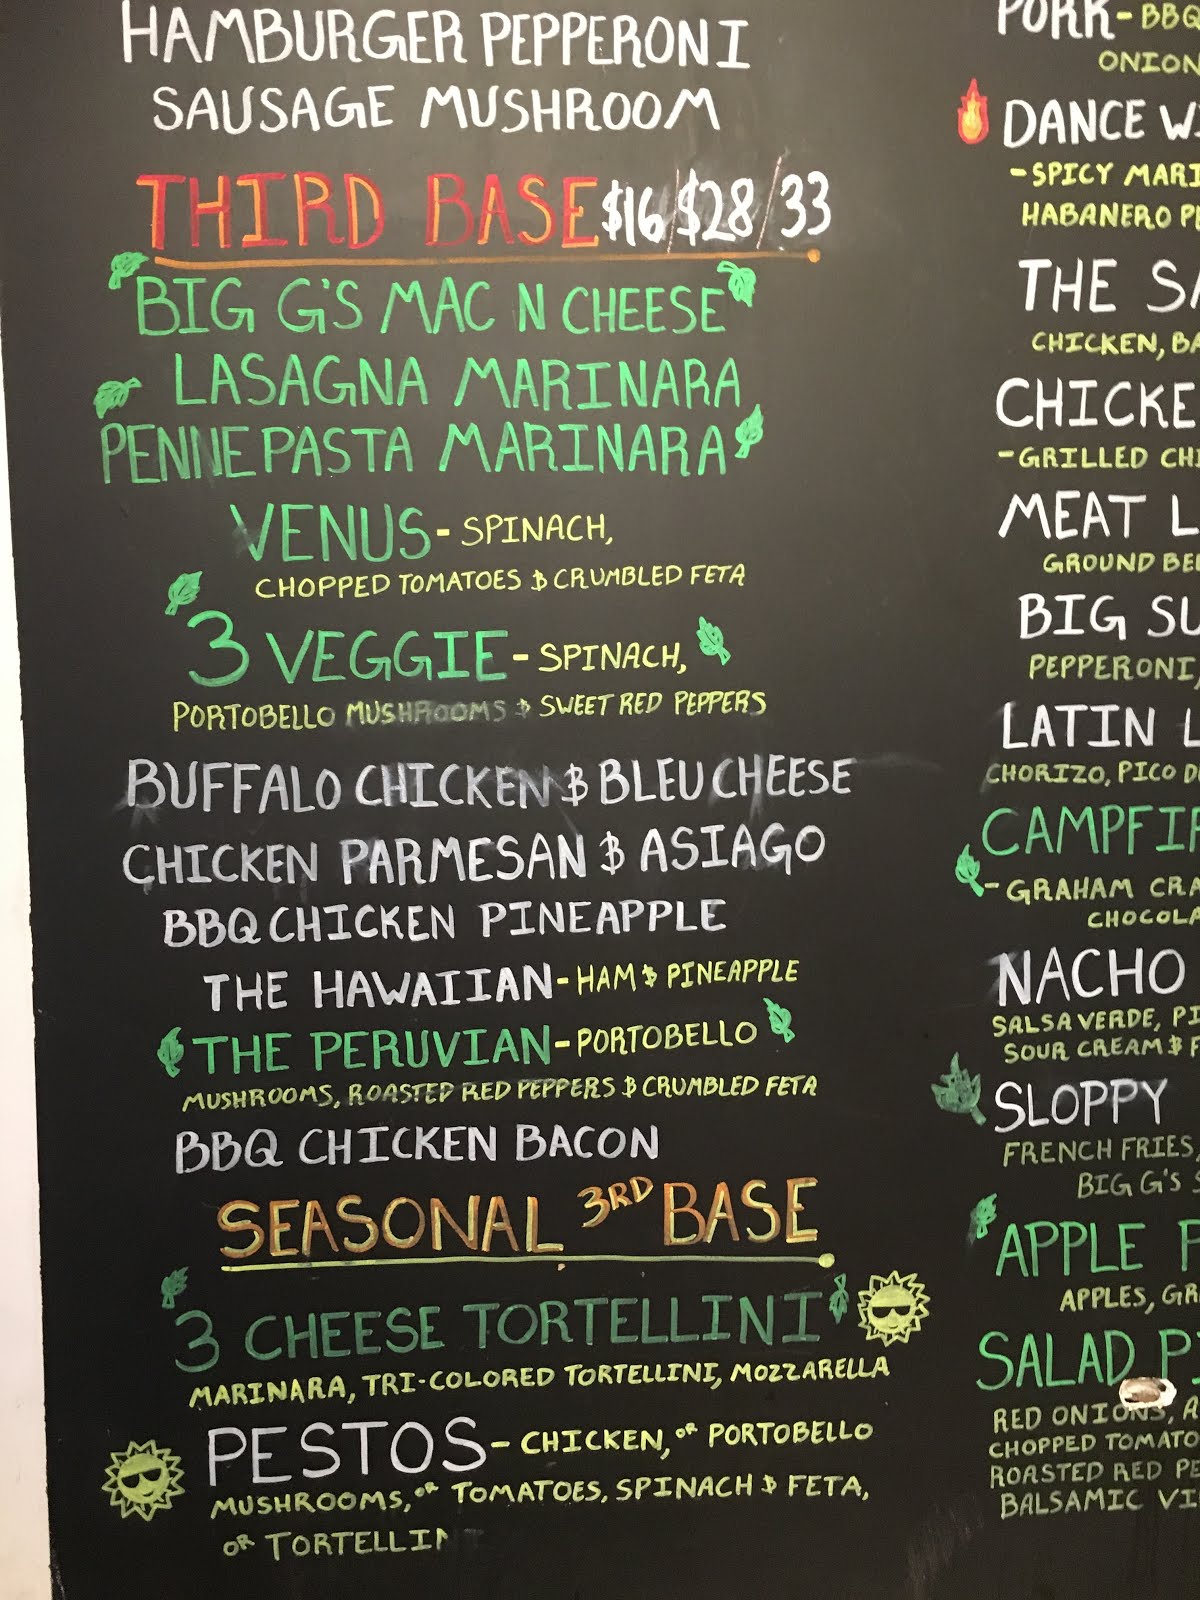 HAMBURGER PEPPERONI
SAUSAGE MUSHROOM
THIRD BASE $16/$28/33
BIG G'S MAC N CHEESE
LASAGNA MARINARA
PENNE PASTA MARINARA
VENUS - SPINACH,
CHOPPED TOMATOES & CRUMBLED FETA
3 VEGGIE - SPINACH,
PORTOBELLO MUSHROOMS & SWEET RED PEPPERS
BUFFALO CHICKEN & BLEU CHEESE
CHICKEN PARMESAN & ASIAGO
BBQ CHICKEN PINEAPPLE
THE HAWAIIAN - HAM & PINEAPPLE
THE PERUVIAN - PORTOBELLO
MUSHROOMS, ROASTED RED PEPPERS & CRUMBLED FETA
BBQ CHICKEN BACON
SEASONAL 3RD BASE
3 CHEESE TORTELLINI
MARINARA, TRI-COLORED TORTELLINI, MOZZARELLA
PESTOS - CHICKEN, OR PORTOBELLO
MUSHROOMS, OR TOMATOES, SPINACH & FETA,
OR TORTELLIN
PORK - BBQ
ONION
DANCE W
- SPICY MARI
HABANERO P
THE SA
CHICKEN, BA
CHICKE
- GRILLED CHI
MEAT L
GROUND BEE
BIG SU
PEPPERONI,
LATIN L
CHORIZO, PICO D
CAMPFIR
- GRAHAM CRA
CHOCOLA
NACHO
SALSA VERDE, PI
SOUR CREAM & F
SLOPPY
FRENCH FRIES,
BIG G'S S
APPLE P
APPLES, GR
SALAD P
RED ONIONS, A
CHOPPED TOMATO
ROASTED RED PE
BALSAMIC VI